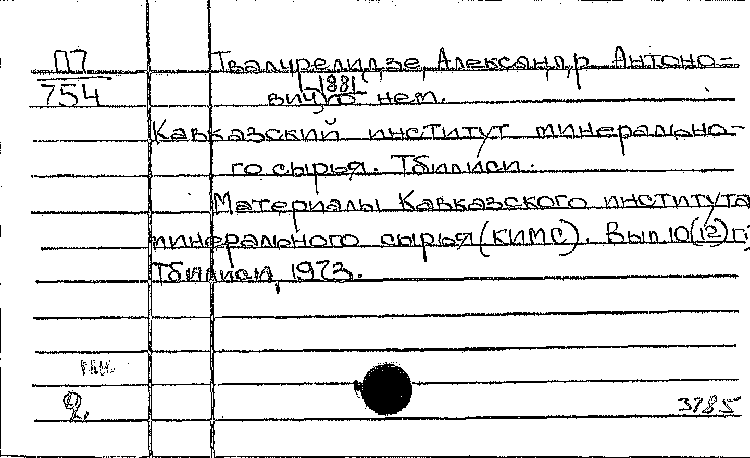 П7
754
Твалчрелидзе, Александр Антоно-
1881
вич о нем.
Кавказский институт минерально-
го сырья. Тбилиси.
Материалы Кавказского института
минерального сырья (КИМС). Вып. 10(12)
Тбилиси, 1973.
2.
3785